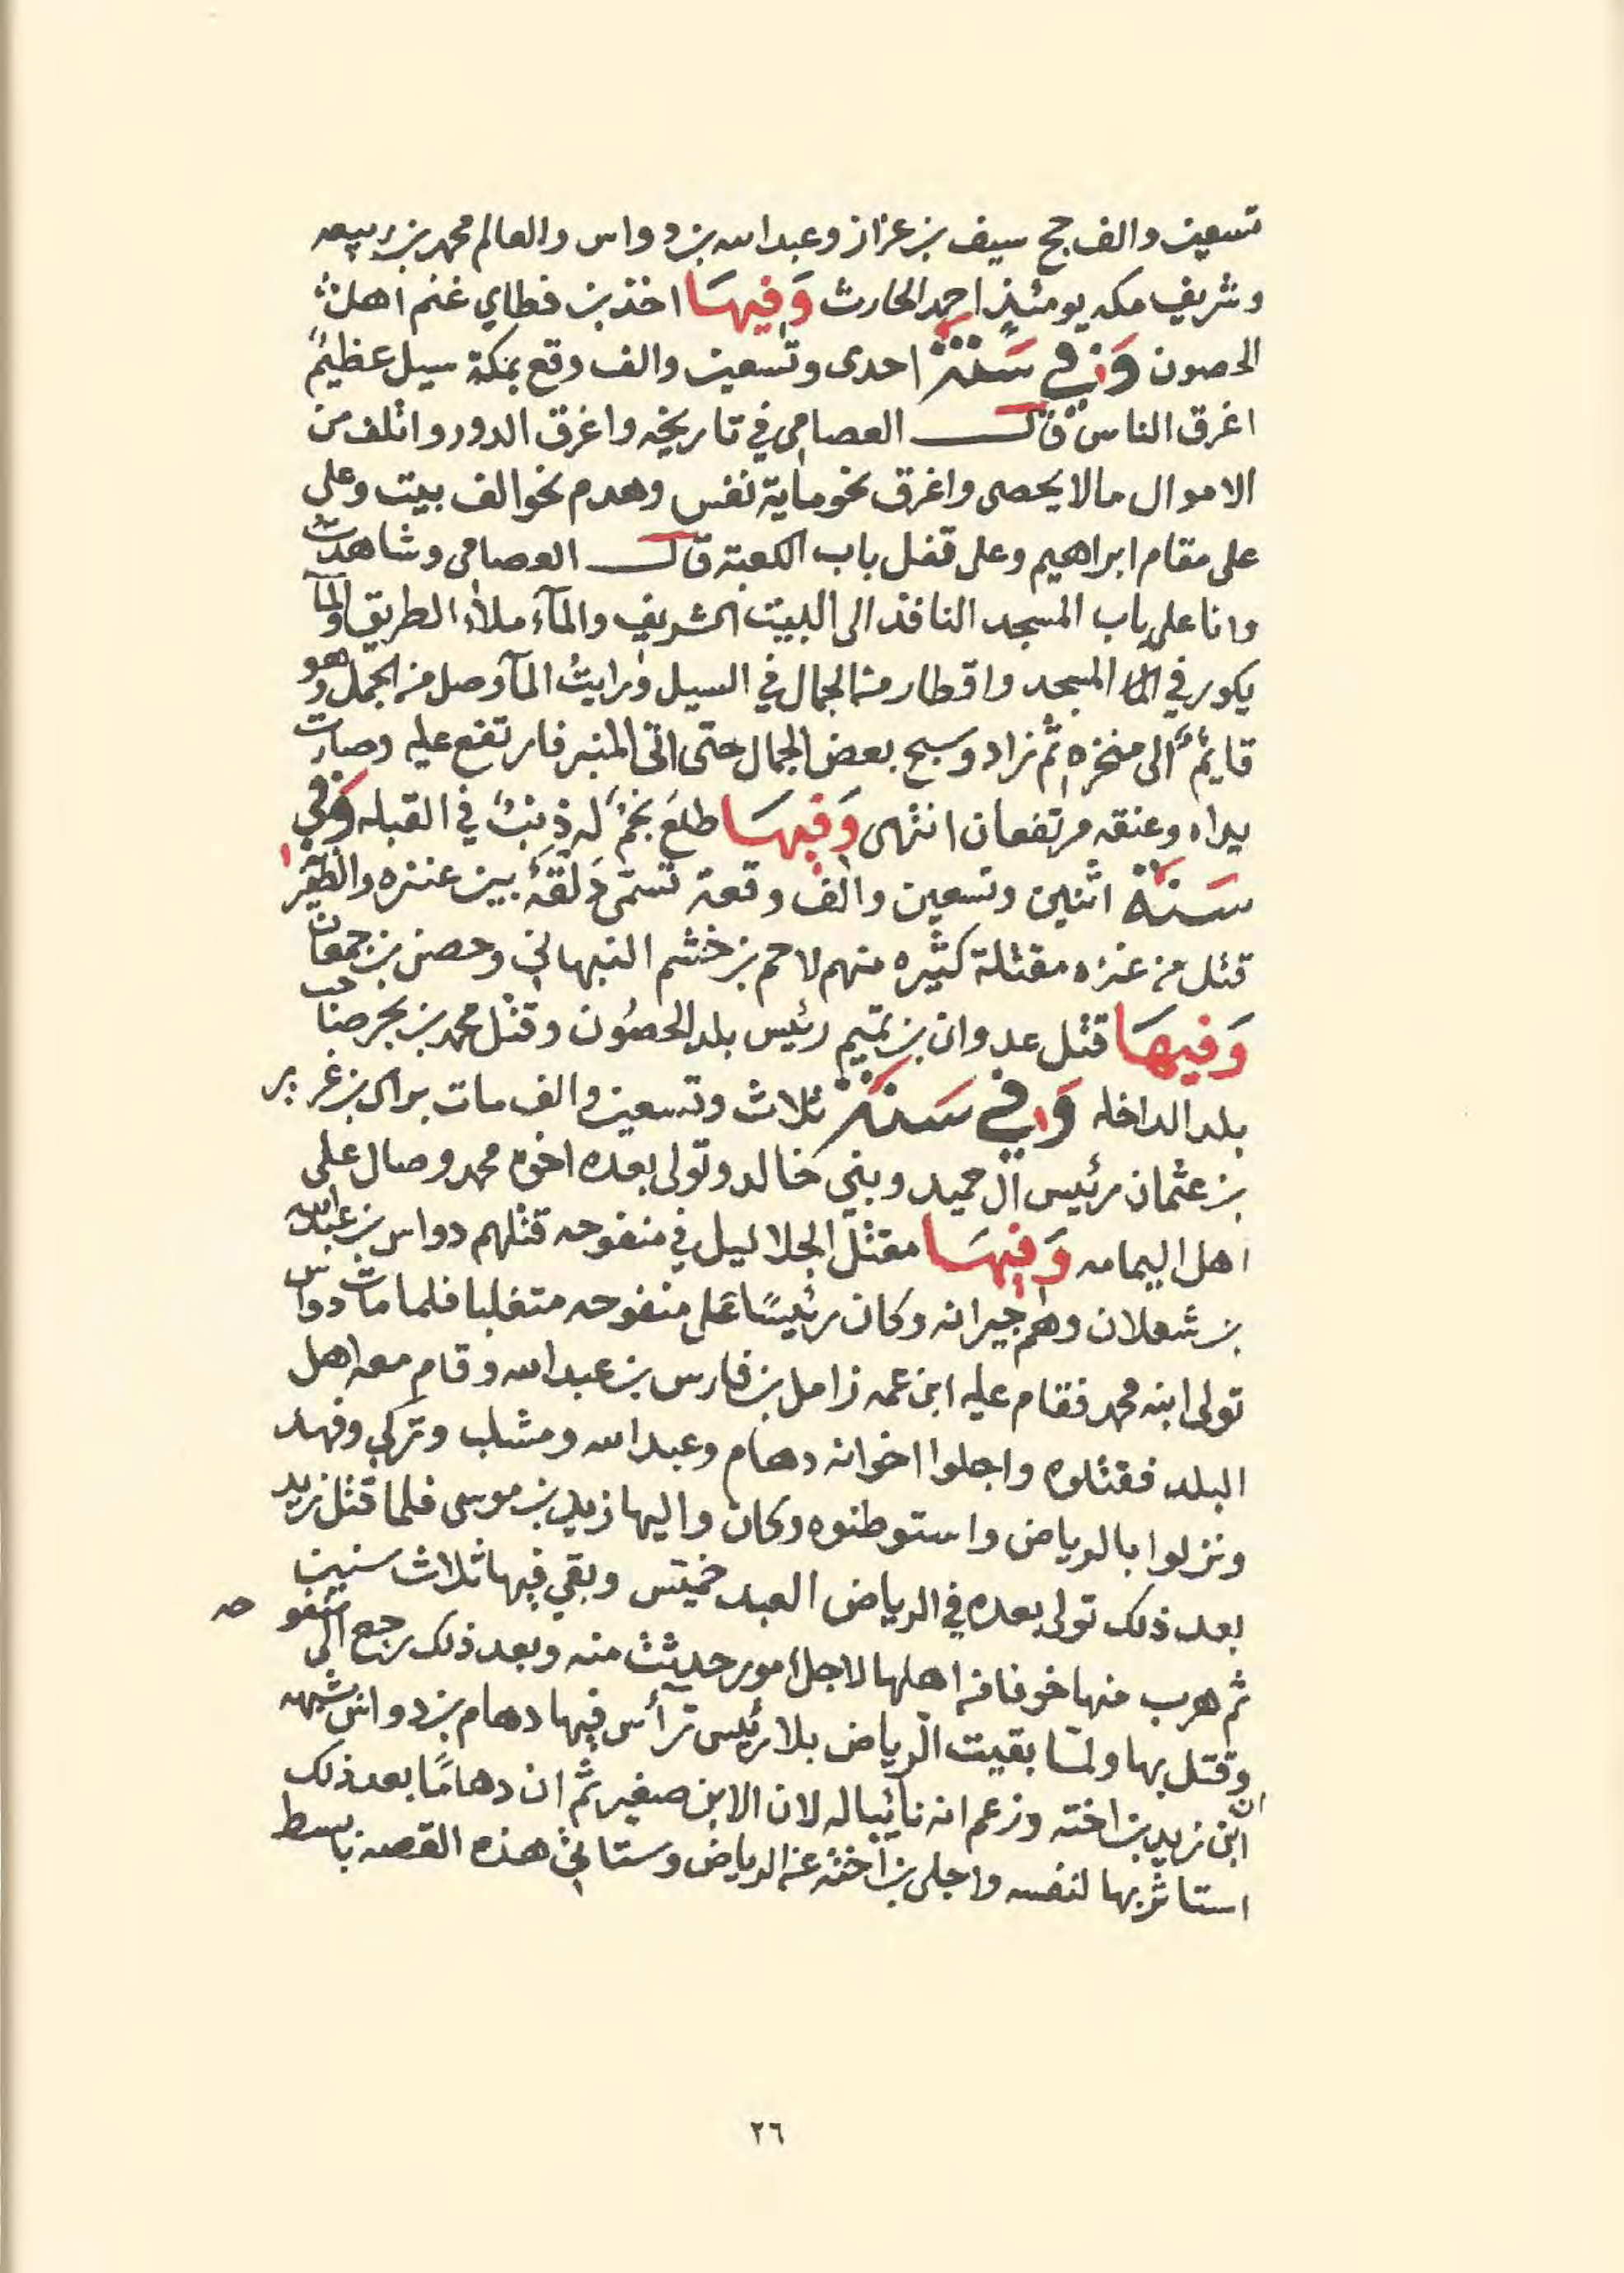 تسعين والف حج سيف بن عزاز وعبدالله بن دواس والعالم محمد بن ربيعه
وشريف مكه يومئذٍ احمد الحارث وَفيهَا اخذ بن قطاي غنم اهل
الحصون وَفي سَنَة احدى وتسعين والف وقع بمكة سيل عظيمٌ
اغرق الناس قال العصامي في تاريخه واغرق الدور واتلف من
الاموال مالا يحصى واغرق نحو ماية نفس وهدم نحو الف بيت وعلى
على مقام ابراهيم وعلى قفل باب الكعبة قال العصامي وشاهدتُ
وانا على باب المسجد النافذ الى البيت الشريف والمآء ملأ الطريق والمآ
يكور في المسجد واقطار من الجمال في السيل ورايتُ المآ وصل من الجمل وهو
قايمٌ الى منخره ثم زاد وسبح بعض الجمال حتى اتى المنبر فارتفع عليه وصارت
يداه وعنقه مرتفعان انتهى وَفيهَا طلعَ نجمٌ له ذنبٌ في القبله وَفي
سَنَة اثنين وتسعين والف وقعة تسمّى دَلقَة بين عنزه والظفير
قتل من عنزه مقتلة كثيره منهم لاحم بن خشم النبهاني وحصن بن جمعان
وَفيهَا قتل عدوان بن تميم رئيس بلد الحصُون وقتل محمد بن بحر صاحب
بلد الداخله وَفي سَنَة ثلاث وتسعين والف مات براك بن غرير
بن عثمان رئيس آل حميد وبني خالد وتولى بعده اخوه محمد وصال على
اهل اليمامه وَفيهَا مقتل الجلاليل في منفوحه قتلهم دواس بن عبدالله
بن شعلان وهم جيرانه وكان رئيسًا على منفوحه متغلبا فلما مات دواس
تولى ابنه محمد فقام عليه ابن عمه زامل بن فارس بن عبدالله وقام معه اهل
البلد فقتلوه واجلوا اخوانه دهام وعبدالله ومشلب وتركي وفهد
ونزلوا بالرياض واستوطنوه وكان واليها زيد بن موسى فلما قتل زيد
بعد ذلك تولى بعده في الرياض العبد خميّس وبقي فيها ثلاث سنين
ثم هرب منها خوفا من اهلها لاجل امور حدثت منه وبعد ذلك رجع الى منفوحه
وقتل بها ولمّا بقيت الرياض بلا رئيس ترأس فيها دهام بن دواس لشبهه
ان ابن زيد بن اخته وزعم انه نائبا له لان الابن صغير ثم ان دهامًا بعد ذلك
استاثر بها لنفسه واجلى بن اخته عن الرياض وستاتي هذه القصه بابسط
٢٦